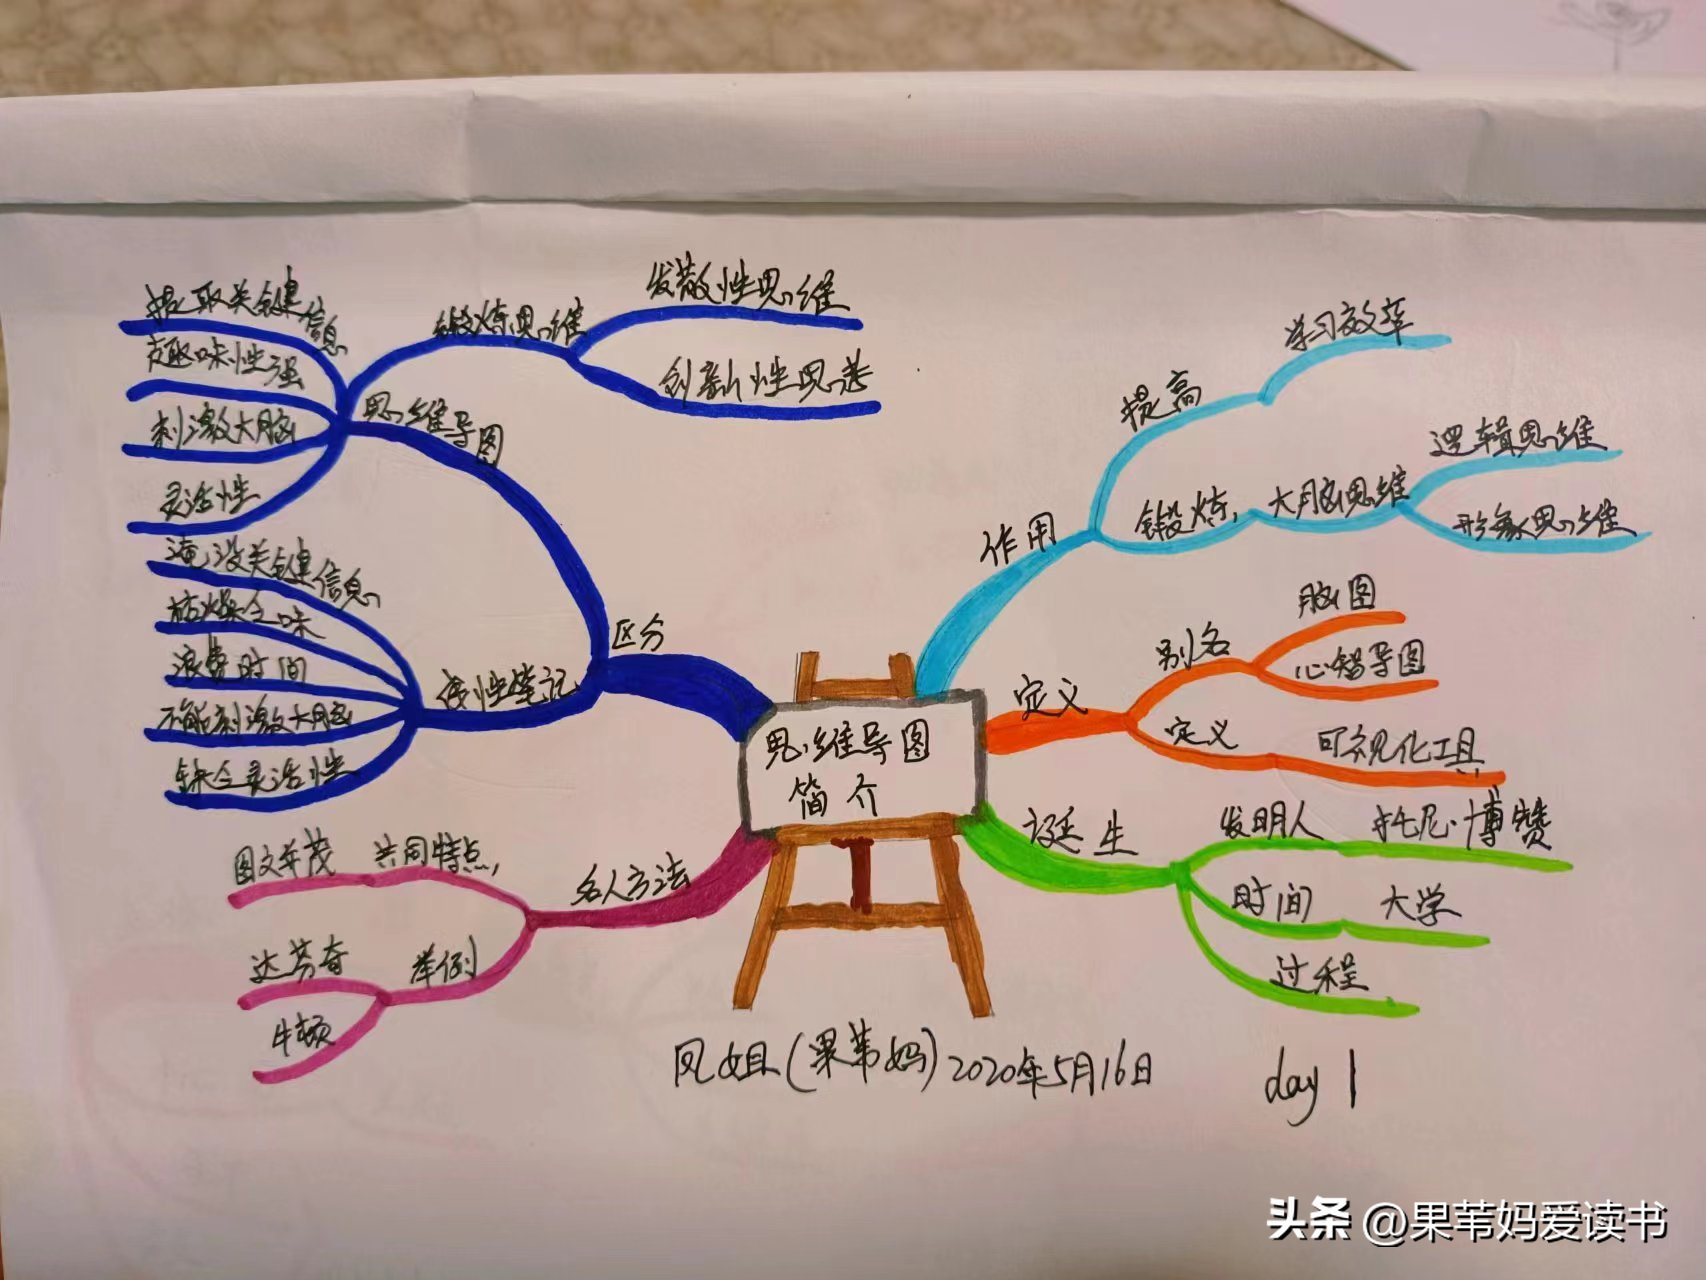 思维导图
简介
作用
提高
学习效率
锻炼
大脑思维
逻辑思维
形象思维
定义
别名
脑图
心智导图
定义
可视化工具
诞生
发明人
托尼·博赞
时间
大学
过程
名人方法
共同特点
图文并茂
举例
达芬奇
牛顿
区分
思维导图
锻炼思维
发散性思维
创新性思维
提取关键信息
趣味性强
刺激大脑
灵活性
线性笔记
淹没关键信息
枯燥乏味
浪费时间
不能刺激大脑
缺乏灵活性
凤姐(果苇妈)2020年5月16日
day 1
头条 @果苇妈爱读书